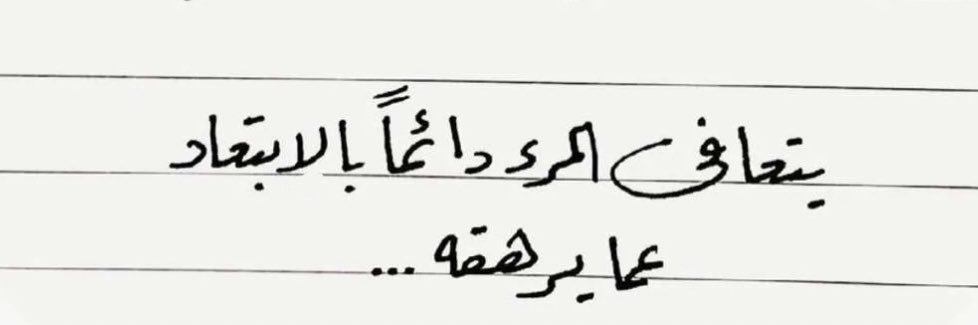 يتعافى المرء دائماً بالابتعاد
عما يرهقه...